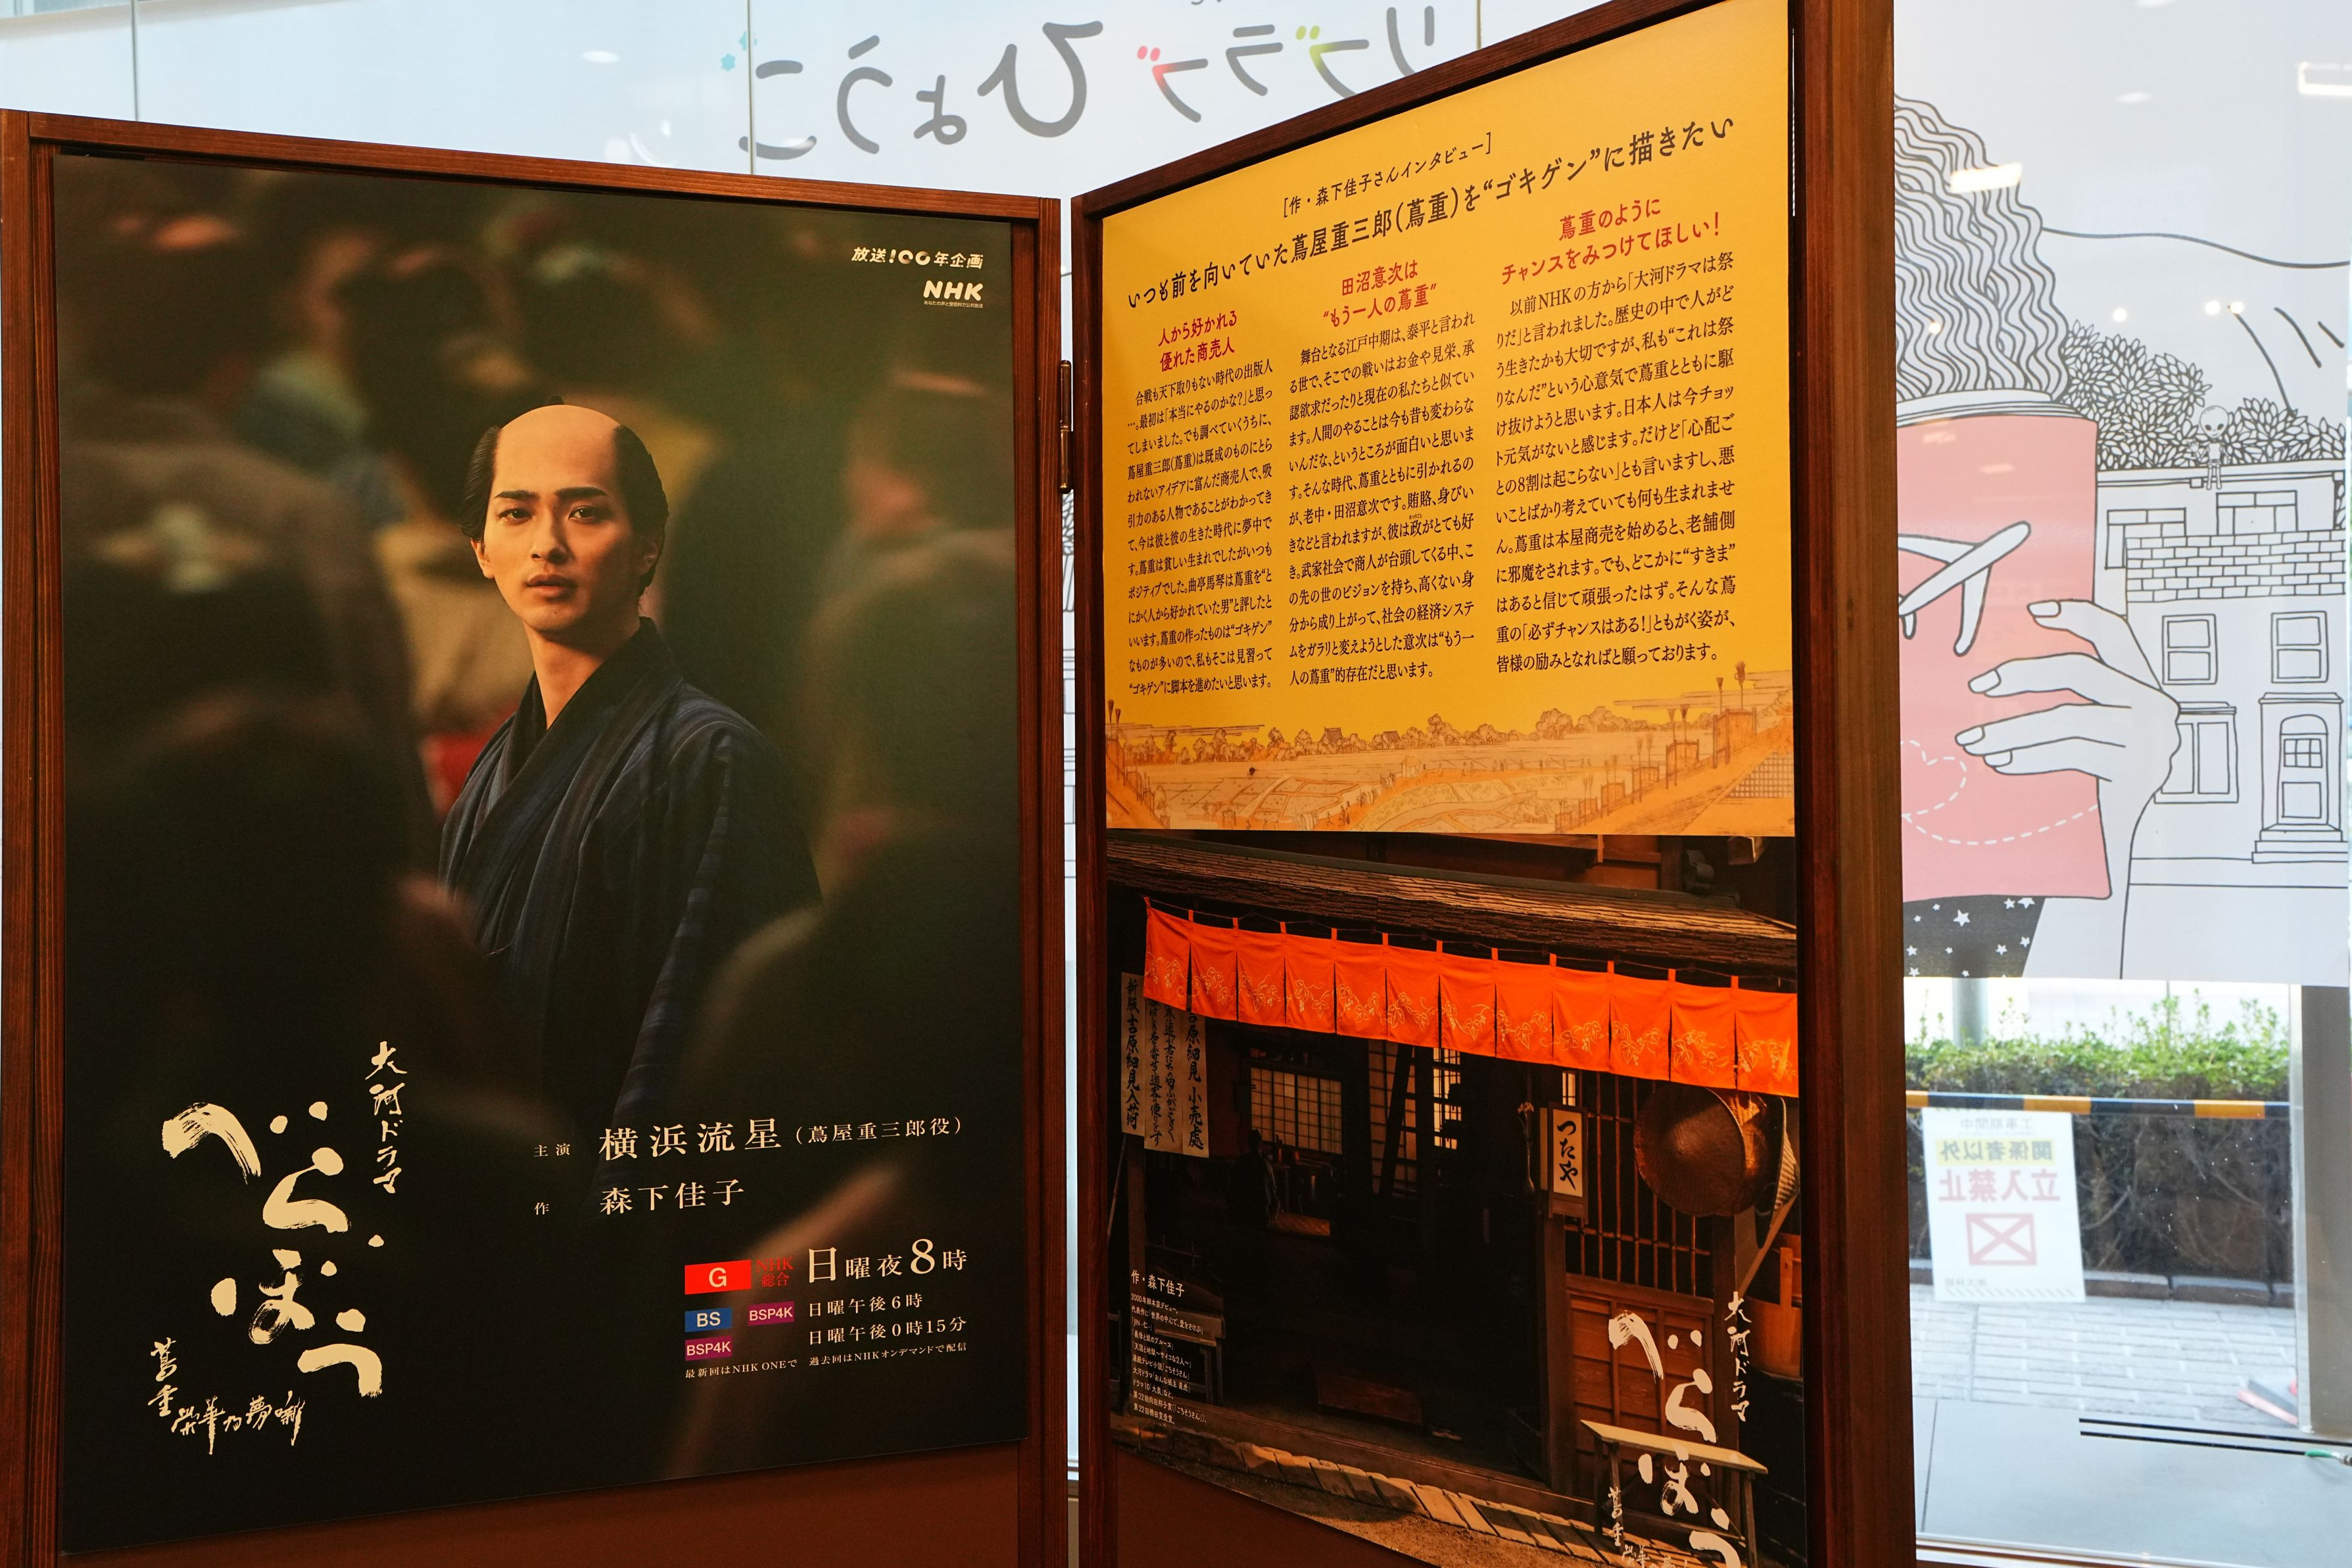 リブラブひょうご
放送100年企画
NHK
大河ドラマ
べらぼう
蔦重栄華乃夢噺
主演 横浜流星(蔦屋重三郎役)
作 森下佳子
G NHK総合 日曜夜8時
BS BSP4K 日曜午後6時
BSP4K 日曜午後0時15分
最新回はNHK ONEで 過去回はNHKオンデマンドで配信
[作・森下佳子さんインタビュー]
いつも前を向いていた蔦屋重三郎(蔦重)を“ゴキゲン”に描きたい
人から好かれる
優れた商売人
合戦も天下取りもない時代の出版人
…。最初は「本当にやるのかな?」と思っ
てしまいました。でも調べていくうちに、
蔦屋重三郎(蔦重)は既成のものにとら
われないアイデアに富んだ商売人で、吸
引力のある人物であることがわかってき
て、今は彼と彼の生きた時代に夢中で
す。蔦重は貧しい生まれでしたがいつも
ポジティブでした。曲亭馬琴は蔦重を“と
にかく人から好かれていた男”と評したと
いいます。蔦重の作ったものは“ゴキゲン”
なものが多いので、私もそこは見習って
“ゴキゲン”に脚本を進めたいと思います。
田沼意次は
“もう一人の蔦重”
舞台となる江戸中期は、泰平と言われ
る世で、そこでの戦いはお金や見栄、承
認欲求だったりと現在の私たちと似てい
ます。人間のやることは今も昔も変わらな
いんだな、というところが面白いと思いま
す。そんな時代、蔦重とともに引かれるの
が、老中・田沼意次です。賄賂、身びい
きなどと言われますが、彼は政がとても好
き。武家社会で商人が台頭してくる中、こ
の先の世のビジョンを持ち、高くない身
分から成り上がって、社会の経済システ
ムをガラリと変えようとした意次は“もう一
人の蔦重”的存在だと思います。
蔦重のように
チャンスをみつけてほしい!
以前NHKの方から「大河ドラマは祭
りだ」と言われました。歴史の中で人がど
う生きたかも大切ですが、私も“これは祭
りなんだ”という心意気で蔦重とともに駆
け抜けようと思います。日本人は今チョッ
ト元気がないと感じます。だけど「心配ご
との8割は起こらない」とも言いますし、悪
いことばかり考えていても何も生まれませ
ん。蔦重は本屋商売を始めると、老舗側
に邪魔をされます。でも、どこかに“すきま”
はあると信じて頑張ったはず。そんな蔦
重の「必ずチャンスはある!」ともがく姿が、
皆様の励みとなればと願っております。
新版吉原細見入荷
吉原細見 小売處
つたや
作・森下佳子
2000年脚本家デビュー。
大河ドラマ
べらぼう
工事期間中
関係者以外
立入禁止